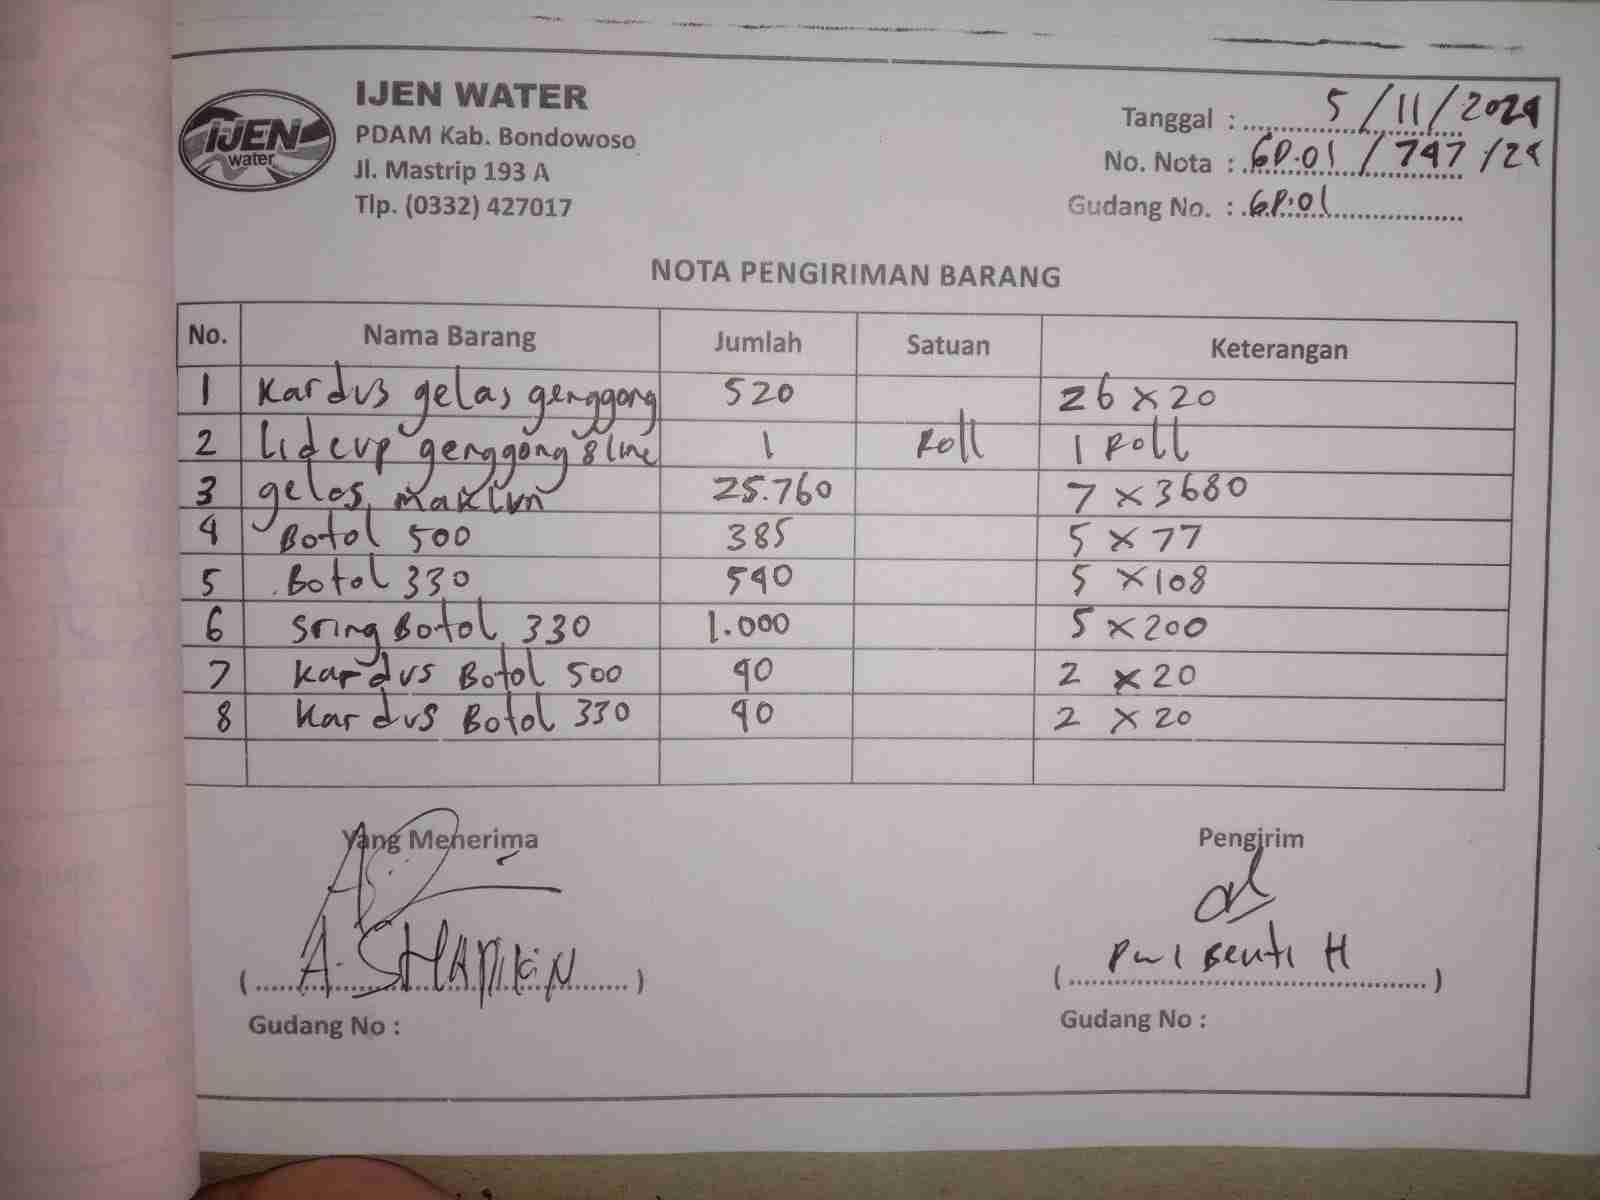 IJEN
water
IJEN WATER
PDAM Kab. Bondowoso
Jl. Mastrip 193 A
Tlp. (0332) 427017
Tanggal : 5/11/2024
No. Nota : GP.01/747/24
Gudang No. : GP.01
NOTA PENGIRIMAN BARANG
No. Nama Barang Jumlah Satuan Keterangan
1 Kardus gelas genggong 520 26 x 20
2 Lidcup genggong 8 line 1 Roll 1 Roll
3 gelas maklun 25.760 7 x 3680
4 Botol 500 385 5 x 77
5 Botol 330 540 5 x 108
6 Sring Botol 330 1.000 5 x 200
7 Kardus Botol 500 40 2 x 20
8 Kardus Botol 330 40 2 x 20
Yang Menerima Pengirim
(A. ) (H)
Gudang No : Gudang No :